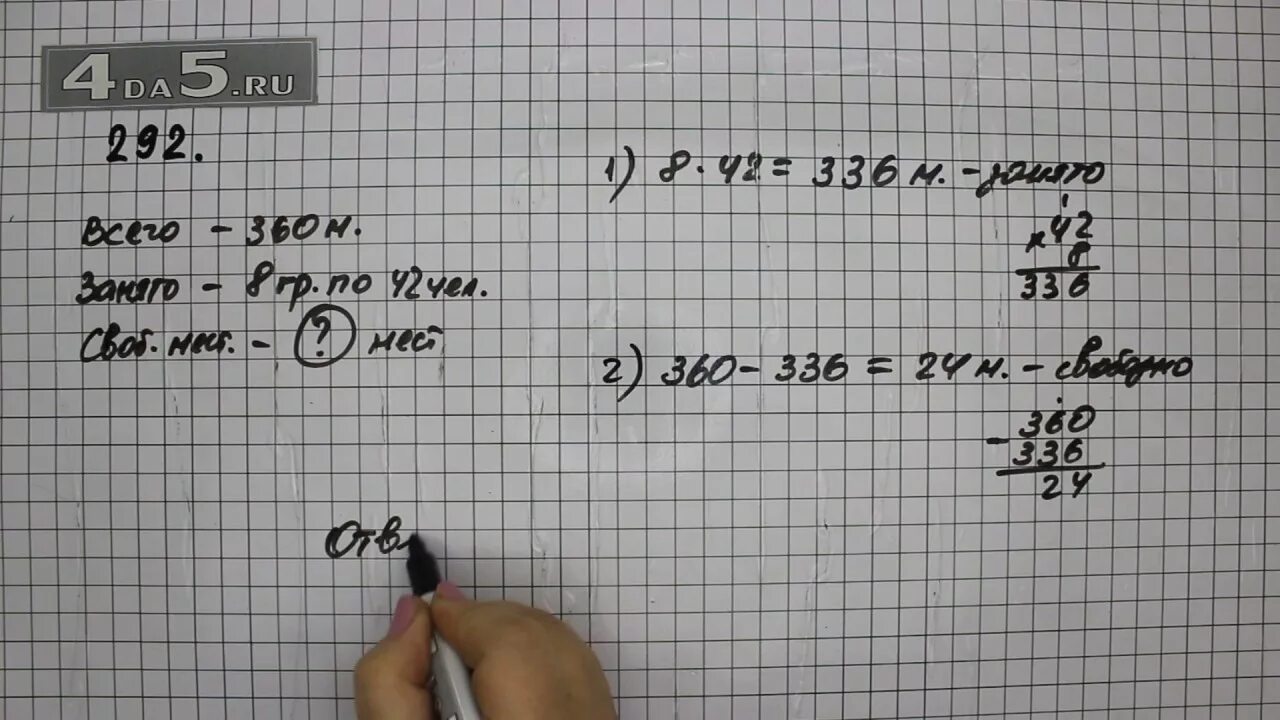 4DA5.RU
292.
Всего - 360 м.
Занято - 8 гр. по 42 чел.
Своб. мест. - ? мест
Отв
1) 8 · 42 = 336 м. - занято
х 42
8
336
2) 360 - 336 = 24 м. - свободно
- 360
336
24